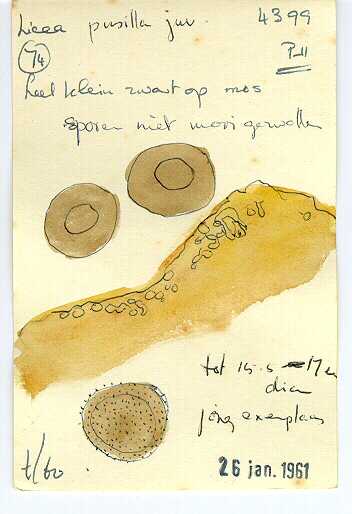 Licea pusilla juv. 4399
74
heel klein zwart op mos
sporen niet mooi gezwollen
tot 15.5 - 17 u
diam
jong exemplaar
t/60
26 jan. 1961